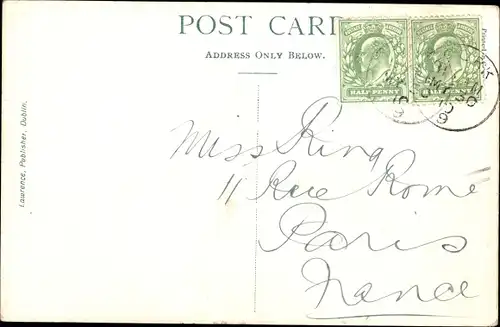 POST CARD
ADDRESS ONLY BELOW.
HALF PENNY
HALF PENNY
Miss King
11 Rue Rome
Paris
France
Lawrence, Publisher, Dublin.